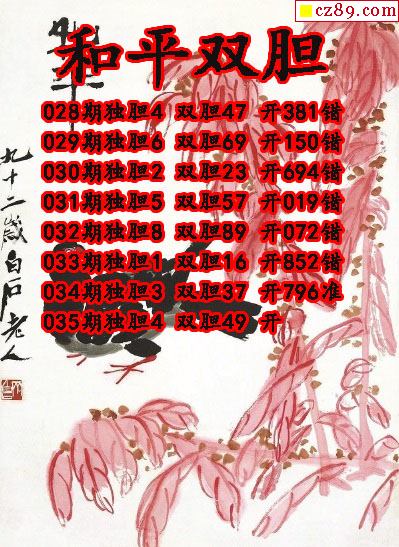 cz89.com
和平双胆
028期独胆4 双胆47 开381错
029期独胆6 双胆69 开150错
030期独胆2 双胆23 开694错
031期独胆5 双胆57 开019错
032期独胆8 双胆89 开072错
033期独胆1 双胆16 开852错
034期独胆3 双胆37 开796准
035期独胆4 双胆49 开
九十二岁白石老人